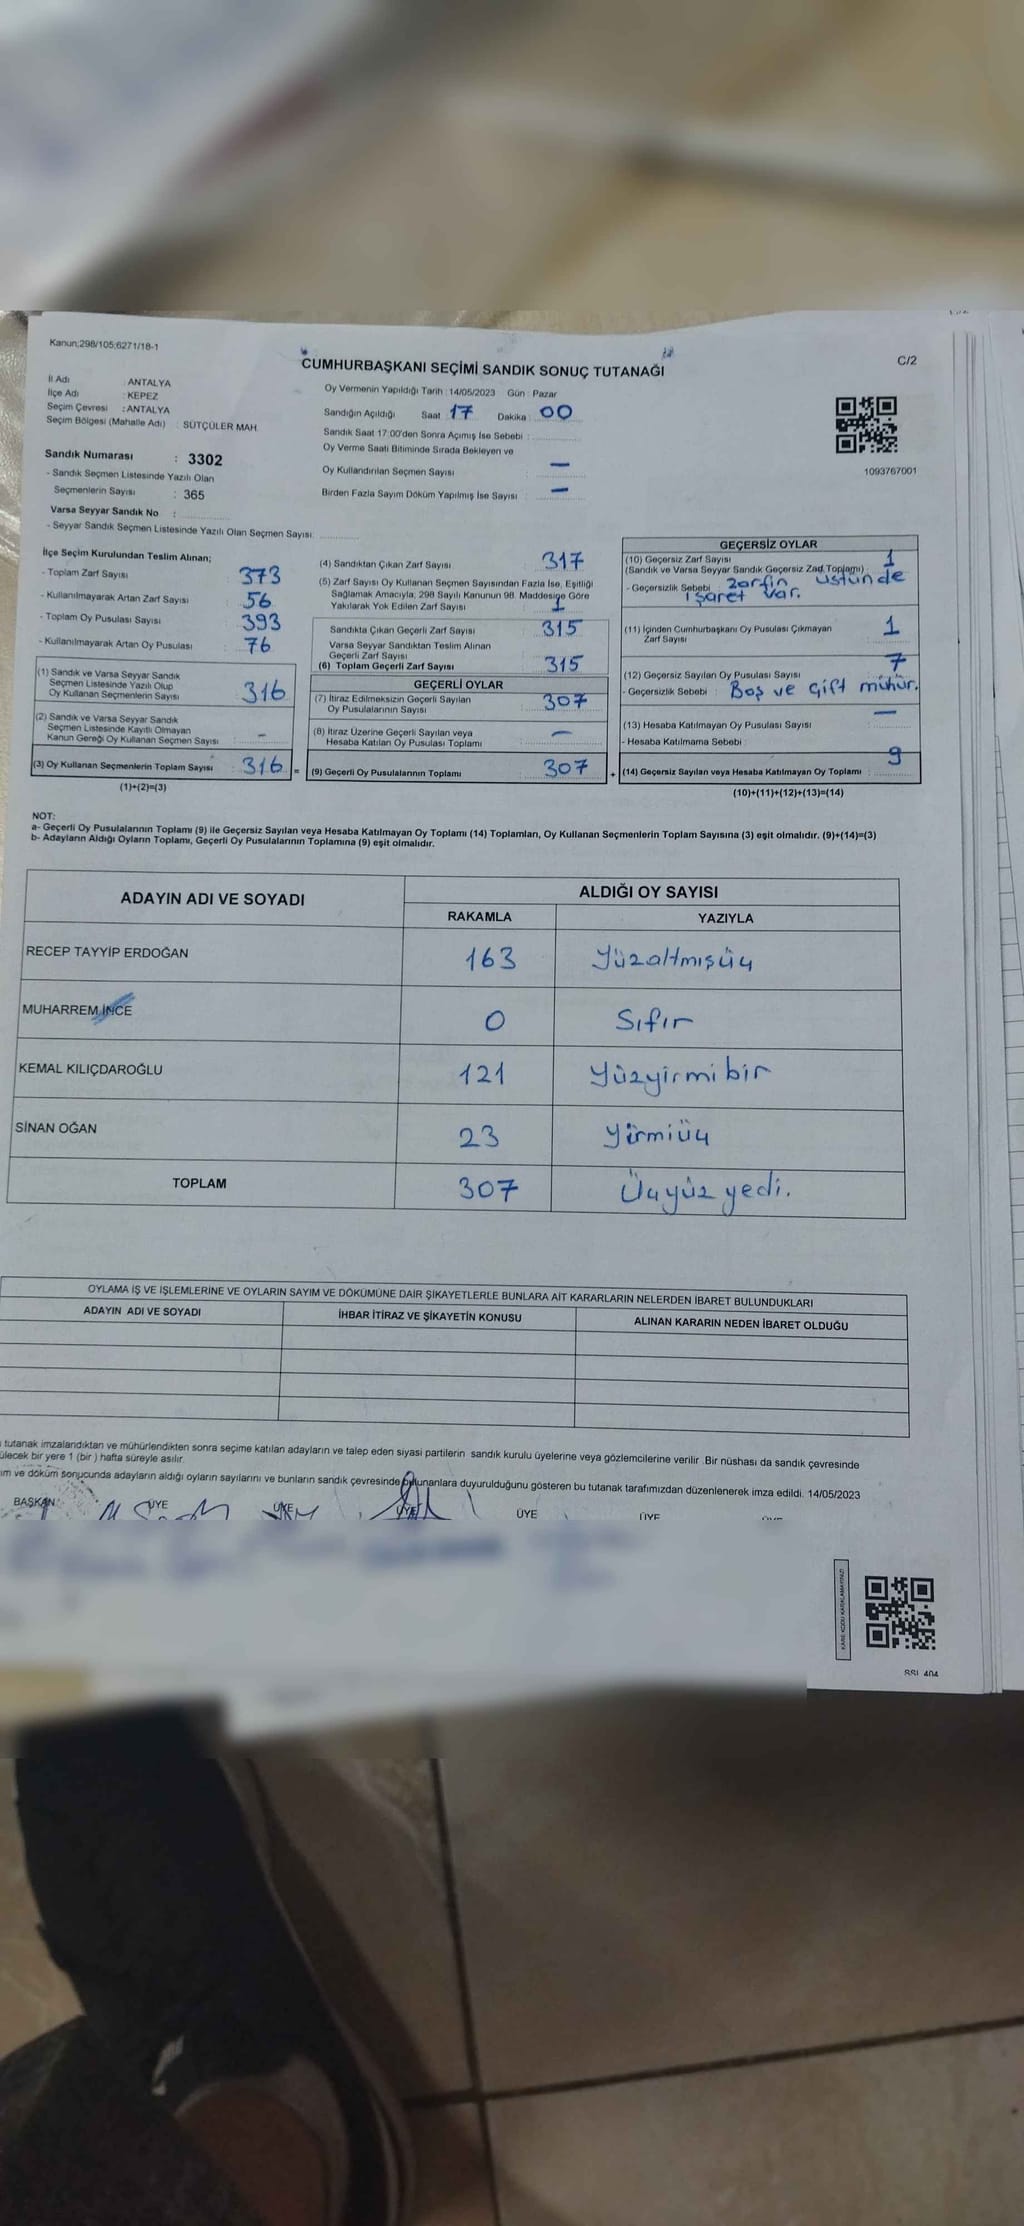 Kanun;298/105;6271/18-1
CUMHURBAŞKANI SEÇİMİ SANDIK SONUÇ TUTANAĞI
C/2
İl Adı : ANTALYA
İlçe Adı : KEPEZ
Seçim Çevresi : ANTALYA
Seçim Bölgesi (Mahalle Adı) : SÜTÇÜLER MAH.
Sandık Numarası : 3302
- Sandık Seçmen Listesinde Yazılı Olan
Seçmenlerin Sayısı : 365
Varsa Seyyar Sandık No :
- Seyyar Sandık Seçmen Listesinde Yazılı Olan Seçmen Sayısı:
Oy Vermenin Yapıldığı Tarih : 14/05/2023 Gün : Pazar
Sandığın Açıldığı Saat 17 Dakika : 00
Sandık Saat 17:00'den Sonra Açımış İse Sebebi :
Oy Verme Saati Bitiminde Sırada Bekleyen ve
Oy Kullandırılan Seçmen Sayısı —
Birden Fazla Sayım Döküm Yapılmış İse Sayısı : —
1093767001
İlçe Seçim Kurulundan Teslim Alınan;
- Toplam Zarf Sayısı 373
- Kullanılmayarak Artan Zarf Sayısı 56
- Toplam Oy Pusulası Sayısı 393
- Kullanılmayarak Artan Oy Pusulası 76
(1) Sandık ve Varsa Seyyar Sandık
Seçmen Listesinde Yazılı Olup
Oy Kullanan Seçmenlerin Sayısı 316
(2) Sandık ve Varsa Seyyar Sandık
Seçmen Listesinde Kayıtlı Olmayan
Kanun Gereği Oy Kullanan Seçmen Sayısı : -
(3) Oy Kullanan Seçmenlerin Toplam Sayısı 316 =
(1)+(2)=(3)
(4) Sandıktan Çıkan Zarf Sayısı 317
(5) Zarf Sayısı Oy Kullanan Seçmen Sayısından Fazla İse, Eşitliği
Sağlamak Amacıyla, 298 Sayılı Kanunun 98. Maddesige Göre
Yakılarak Yok Edilen Zarf Sayısı 1
Sandıkta Çıkan Geçerli Zarf Sayısı 315
Varsa Seyyar Sandıktan Teslim Alınan
Geçerli Zarf Sayısı
(6) Toplam Geçerli Zarf Sayısı 315
GEÇERLİ OYLAR
(7) İtiraz Edilmeksizin Geçerli Sayılan
Oy Pusulalarının Sayısı 307
(8) İtiraz Üzerine Geçerli Sayılan veya
Hesaba Katılan Oy Pusulası Toplamı —
(9) Geçerli Oy Pusulalarının Toplamı 307 +
GEÇERSİZ OYLAR
(10) Geçersiz Zarf Sayısı 1
(Sandık ve Varsa Seyyar Sandık Geçersiz Zad Toplamı)
- Geçersizlik Sebebi : zarfın üstünde
işaret var.
(11) İçinden Cumhurbaşkanı Oy Pusulası Çıkmayan
Zarf Sayısı 1
(12) Geçersiz Sayılan Oy Pusulası Sayısı 7
- Geçersizlik Sebebi : Boş ve çift mühür.
(13) Hesaba Katılmayan Oy Pusulası Sayısı —
- Hesaba Katılmama Sebebi
(14) Geçersiz Sayılan veya Hesaba Katılmayan Oy Toplamı : 9
(10)+(11)+(12)+(13)=(14)
NOT:
a- Geçerli Oy Pusulalarının Toplamı (9) ile Geçersiz Sayılan veya Hesaba Katılmayan Oy Toplamı (14) Toplamları, Oy Kullanan Seçmenlerin Toplam Sayısına (3) eşit olmalıdır. (9)+(14)=(3)
b- Adayların Aldığı Oyların Toplamı, Geçerli Oy Pusulalarının Toplamına (9) eşit olmalıdır.
ADAYIN ADI VE SOYADI ALDIĞI OY SAYISI
RAKAMLA YAZIYLA
RECEP TAYYİP ERDOĞAN 163 Yüzaltmışüç
MUHARREM İNCE 0 Sıfır
KEMAL KILIÇDAROĞLU 121 Yüzyirmibir
SİNAN OĞAN 23 Yirmiüç
TOPLAM 307 Üçyüz yedi.
OYLAMA İŞ VE İŞLEMLERİNE VE OYLARIN SAYIM VE DÖKÜMÜNE DAİR ŞİKAYETLERLE BUNLARA AİT KARARLARIN NELERDEN İBARET BULUNDUKLARI
ADAYIN ADI VE SOYADI İHBAR İTİRAZ VE ŞİKAYETİN KONUSU ALINAN KARARIN NEDEN İBARET OLDUĞU
tutanak imzalandıktan ve mühürlendikten sonra seçime katılan adayların ve talep eden siyasi partilerin sandık kurulu üyelerine veya gözlemcilerine verilir .Bir nüshası da sandık çevresinde
ülecek bir yere 1 (bir ) hafta süreyle asılır.
ım ve döküm sonucunda adayların aldığı oyların sayılarını ve bunların sandık çevresinde bulunanlara duyurulduğunu gösteren bu tutanak tarafımızdan düzenlenerek imza edildi. 14/05/2023
BAŞKAN ÜYE ÜYE ÜYE ÜYE ÜYE